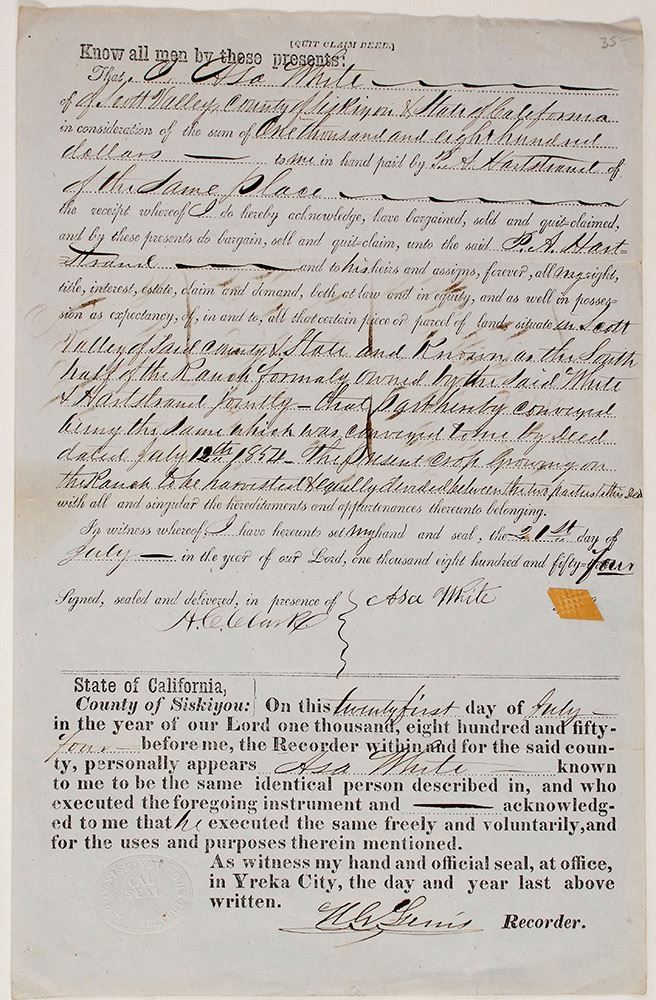 35–
(QUIT CLAIM DEED.)
Know all men by these presents:
That, I Asa White
of Scott Valley, County of Siskiyou & State of California
in consideration of the sum of One thousand and eight hundred
dollars — to me in hand paid by P. A. Hartstrand of
of the Same place
the receipt whereof I do hereby acknowledge, have bargained, sold and quit-claimed,
and by these presents do bargain, sell and quit-claim, unto the said P. A. Hart=
strand — and to his heirs and assigns, forever, all my right,
title, interest, estate, claim and demand, both at law and in equity, and as well in posses-
sion as expectancy, of, in and to, all that certain piece or parcel of land situate in Scott
Valley of Said County & State and Known as the South
half of the Ranch formaly owned by the Said White
& Hartstrand Jointly – that part hereby conveyed
being the Same which was conveyed to me by deed
dated July 12th 1854 – The present crop growing on
the Ranch to be harvested & equally devided between the two parties to this Deed
with all and singular the hereditaments and appurtenances thereunto belonging.
In witness whereof, I have hereunto set my hand and seal, the 21st day of
July — in the year of our Lord, one thousand eight hundred and fifty-four
Signed, sealed and delivered, in presence of } Asa White
H. C. Clark
State of California,
County of Siskiyou: } On this twenty first day of July –
in the year of our Lord one thousand, eight hundred and fifty-
four — before me, the Recorder within and for the said coun-
ty, personally appears Asa White — known
to me to be the same identical person described in, and who
executed the foregoing instrument and — acknowledg-
ed to me that he executed the same freely and voluntarily, and
for the uses and purposes therein mentioned.
As witness my hand and official seal, at office,
in Yreka City, the day and year last above
written.
Recorder.